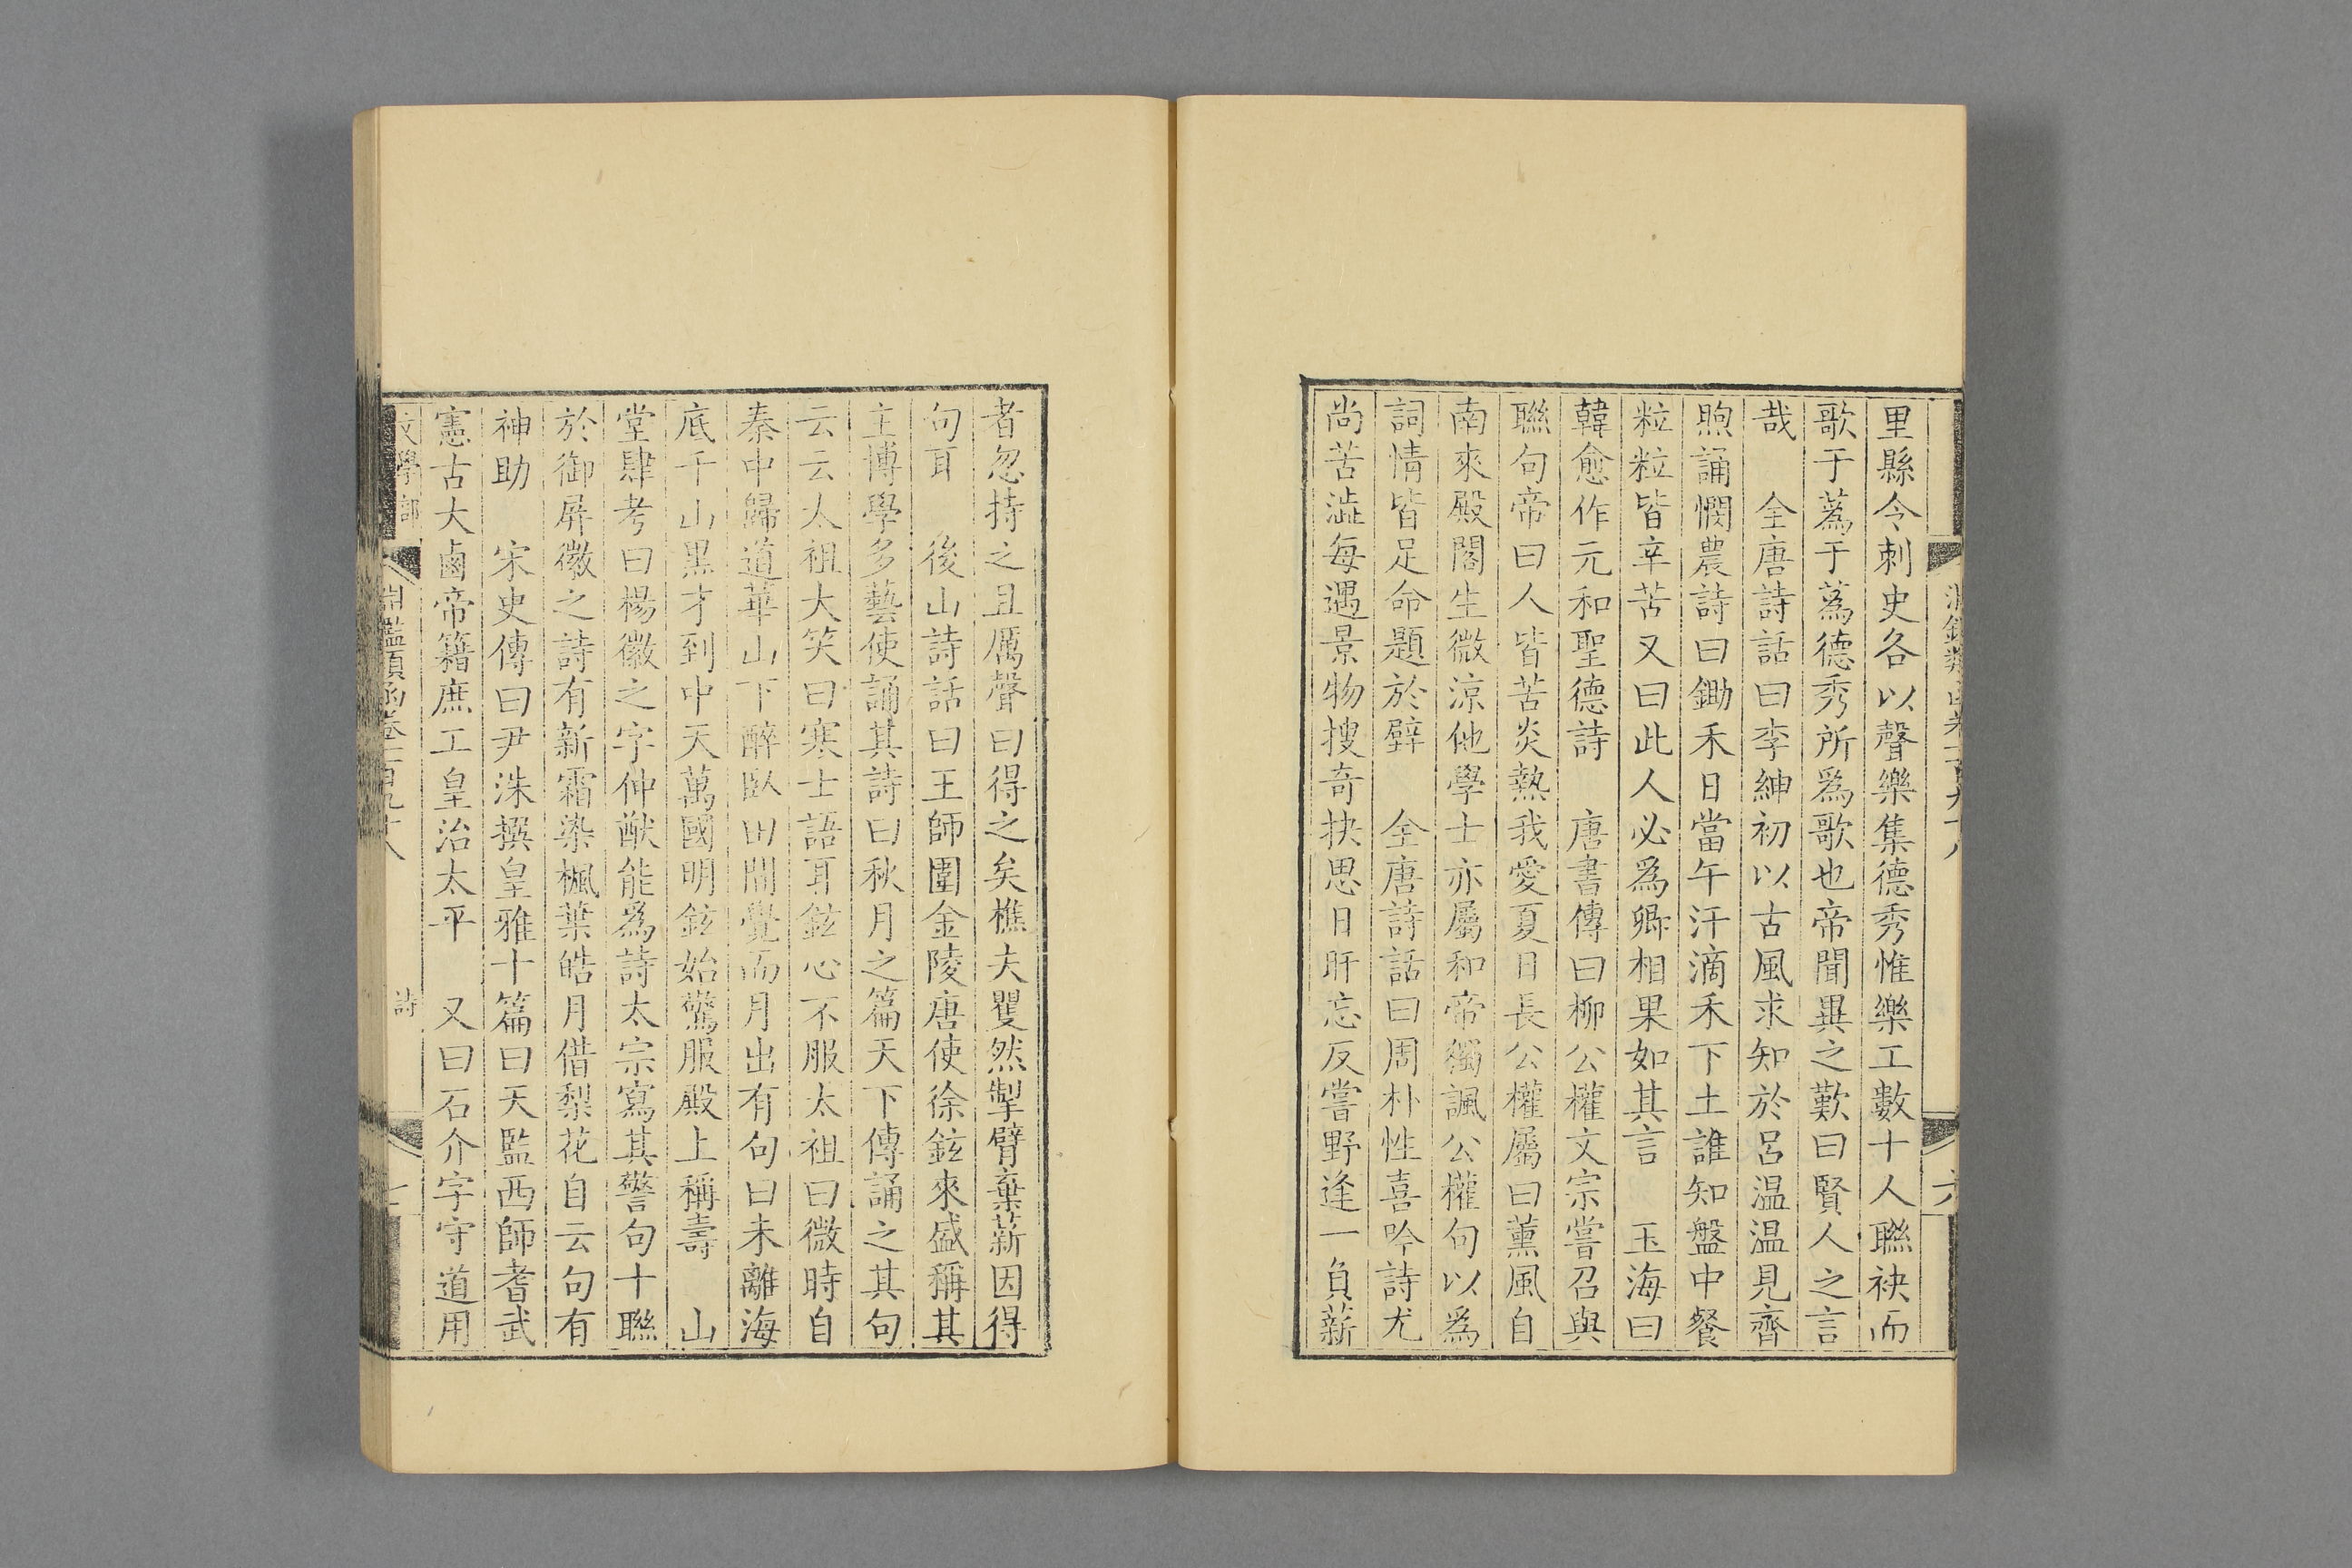 里縣令刺史各以聲樂集德秀惟樂工數十人聯袂而
歌于蒍于蒍德秀所爲歌也帝聞異之歎曰賢人之言
哉　全唐詩話曰李紳初以古風求知於呂温温見齊
煦誦憫農詩曰鋤禾日當午汗滴禾下土誰知盤中餐
粒粒皆辛苦又曰此人必爲卿相果如其言　玉海曰
韓愈作元和聖德詩　唐書傳曰柳公權文宗嘗召與
聯句帝曰人皆苦炎熱我愛夏日長公權屬曰薰風自
南來殿閣生微涼他學士亦屬和帝獨諷公權句以爲
詞情皆足命題於壁　全唐詩話曰周朴性喜吟詩尤
尚苦澁每遇景物搜奇抉思日旰忘反嘗野逢一負薪
者忽持之且厲聲曰得之矣樵夫矍然掣臂棄薪因得
句耳　後山詩話曰王師圍金陵唐使徐鉉來盛稱其
主博學多藝使誦其詩曰秋月之篇天下傳誦之其句
云云太祖大笑曰寒士語耳鉉心不服太祖曰微時自
秦中歸道華山下醉臥田間覺而月出有句曰未離海
底千山黑才到中天萬國明鉉始驚服殿上稱壽　山
堂肆考曰楊徽之字仲猷能爲詩太宗寫其警句十聯
於御屏徽之詩有新霜染楓葉皓月借梨花自云句有
神助　宋史傳曰尹洙撰皇雅十篇曰天監西師耆武
憲古大鹵帝籍庶工皇治太平　又曰石介字守道用
詩